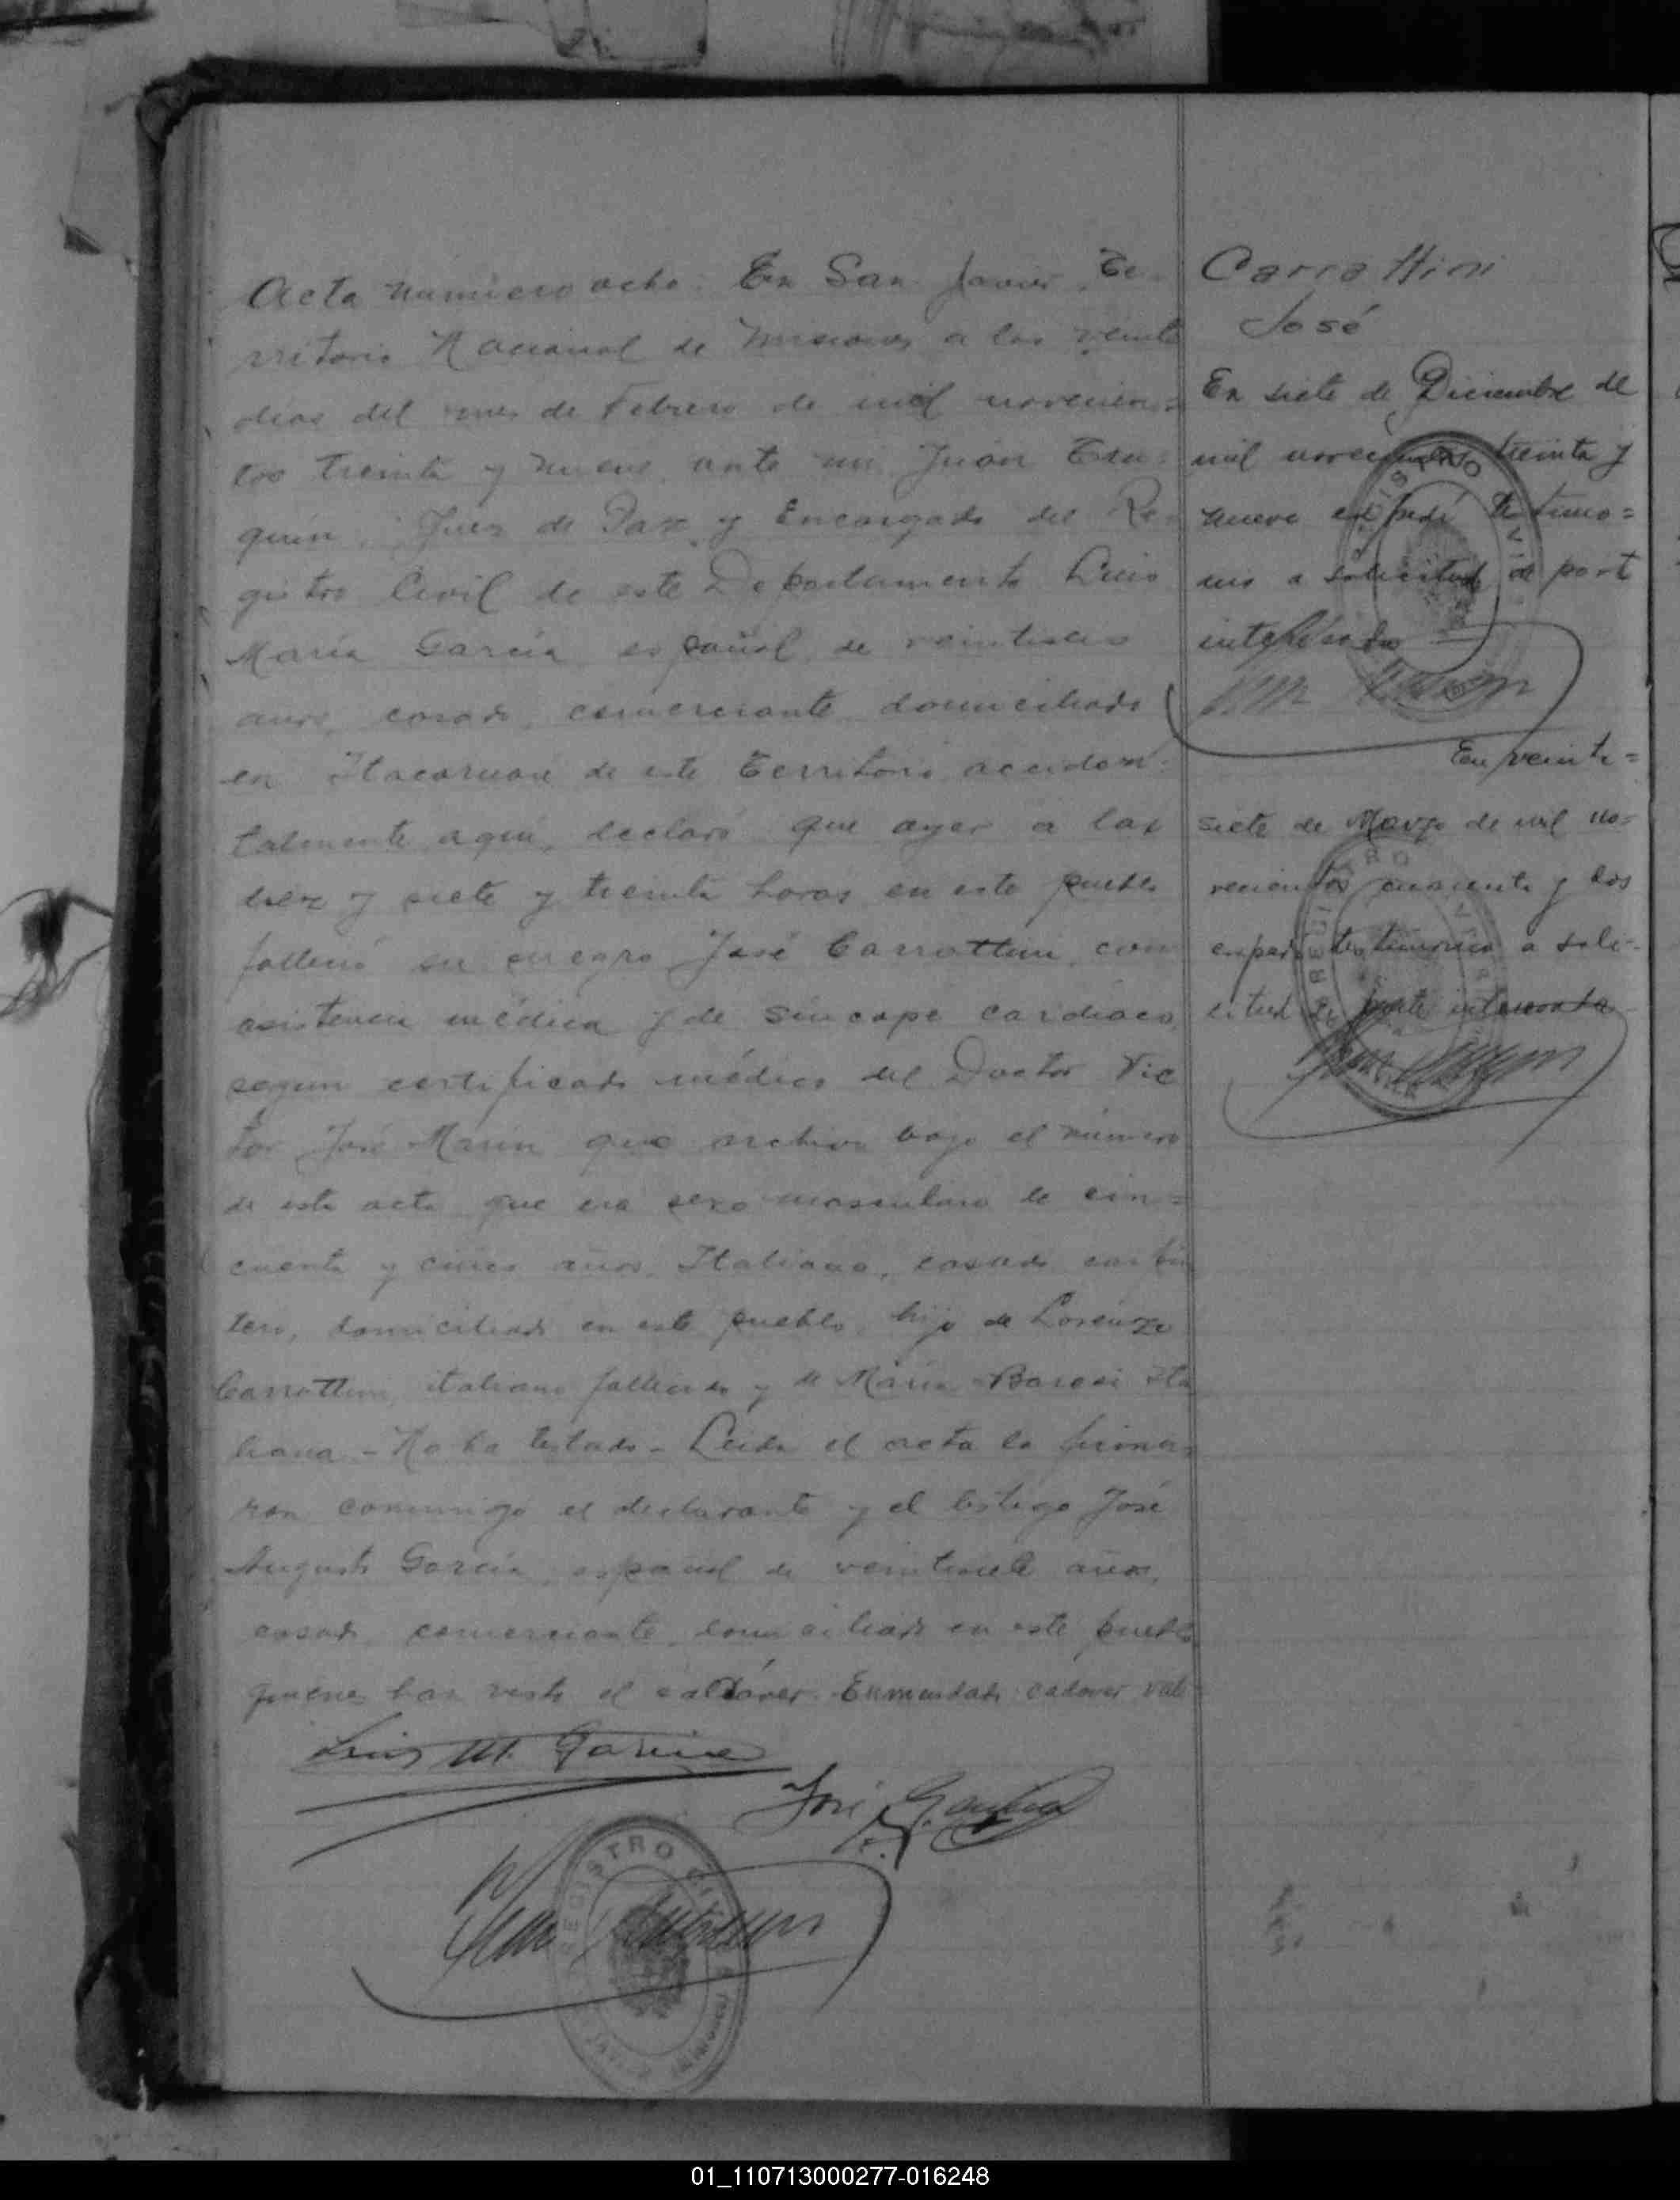 Acta número ocho. En San Javier, Te-
rritorio Nacional de Misiones a los veinte
dias del mes de Febrero de mil novecien=
tos treinta y nueve, ante mi Juan
Juez de Paz y Encargado del Re=
gistro Civil de este Departamento Luis
María García español, de
años, casado, comerciante domiciliado
en Itacaruaré de este Territorio acciden=
talmente aquí, declaró que ayer a las
diez y siete y treinta horas en este pueblo
falleció su suegro José Carrottini, con
asistencia médica y de sincope cardiaco,
segun certificado médico del Doctor Vic
tor José Marin que archivo bajo el número
de esta acta que era sexo masculino de cin=
cuenta y cinco años, Italiano, casado carpin
tero, domiciliado en este pueblo, hijo de Lorenzo
Carrottini, italiano fallecido y de María Baresi ita
liana - No ha testado - Leida el acta la firma=
ron conmigo el declarante y el testigo José
Augusto García, español de veintisiete años,
casado, comerciante, domiciliado en este pueblo
quienes han visto el cadáver. Enmendado: cadaver. Vale
Luis M. Garcia
José A. Garcia
REGISTRO CIVIL
Carrottini
José
En siete de Diciembre de
mil novecientos treinta y
nueve expedí testimo=
nio a solicitud de parte
interesada
En veinti=
siete de Marzo de mil no=
vecientos cuarenta y dos
expedí testimonio a soli-
citud de parte interesada
REGISTRO CIVIL
REGISTRO CIVIL
01_110713000277-016248